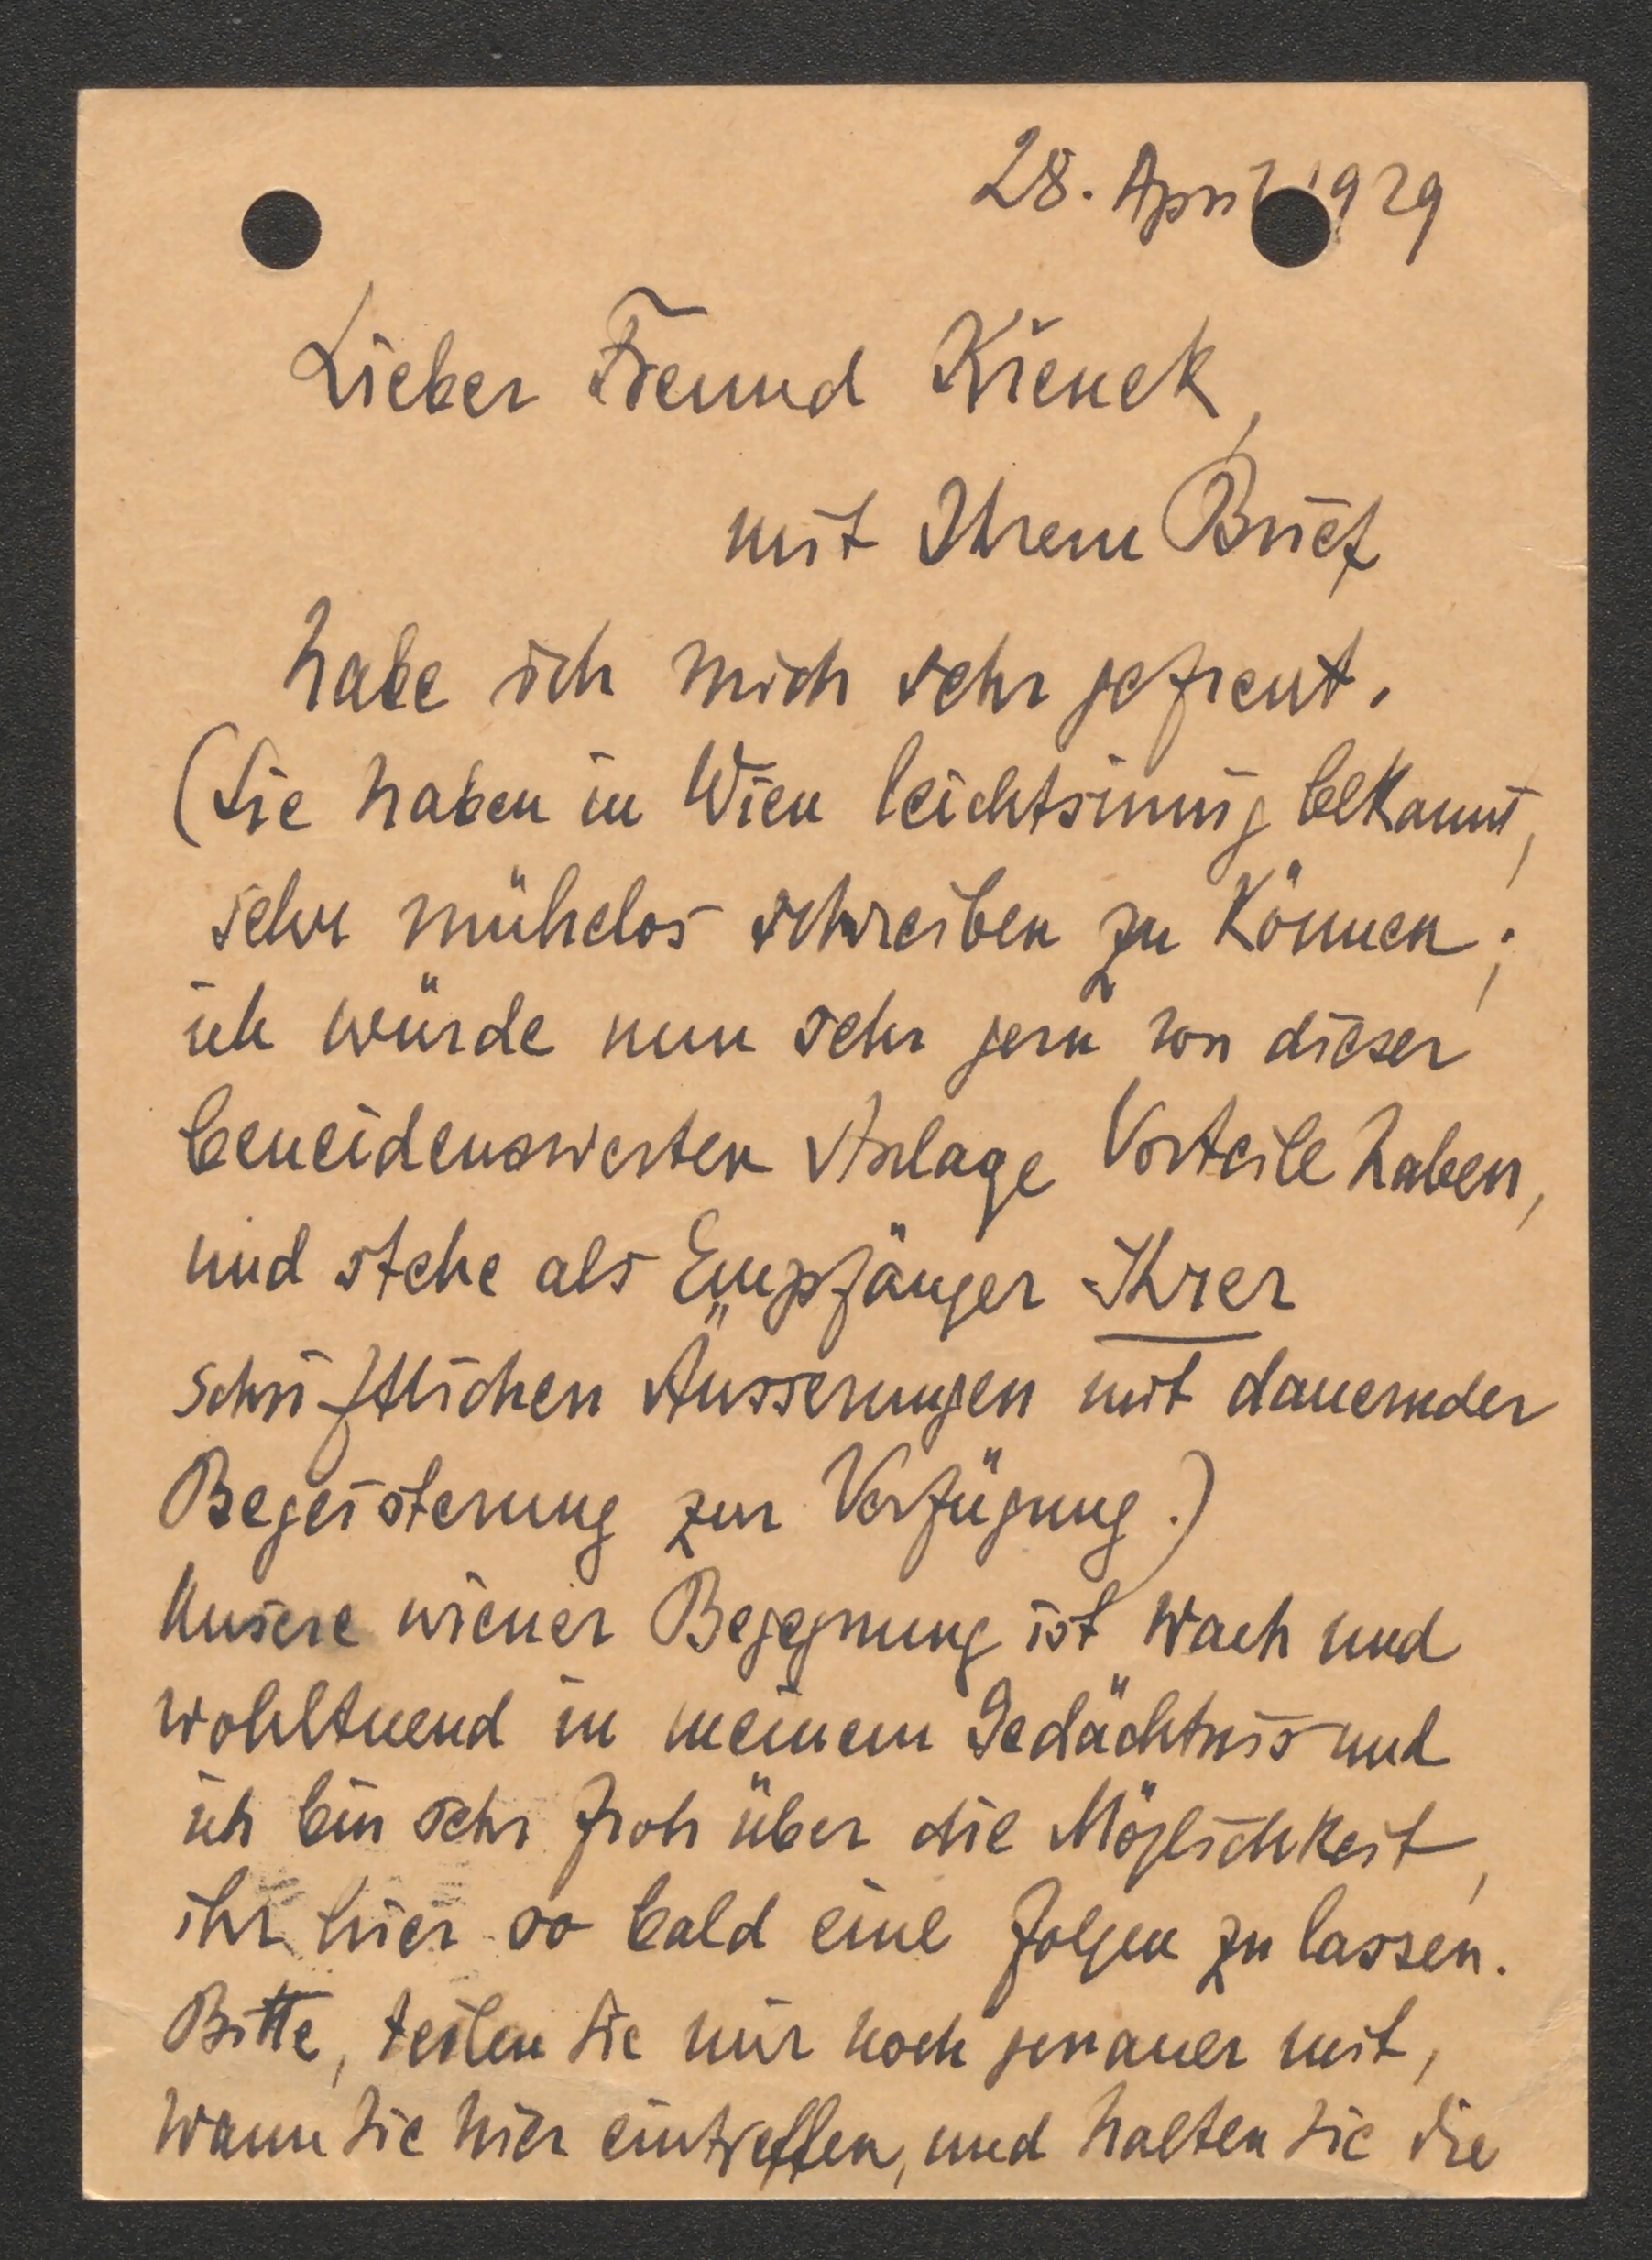 28. April 1929
Lieber Freund Křenek,
mit Ihrem Brief
habe ich mich sehr gefreut.
(Sie haben in Wien leichtsinnig bekannt,
sehr mühelos schreiben zu können;
ich würde nun sehr gern von dieser
beneidenswerten Anlage Vorteile haben,
und stehe als Empfänger Ihrer
schriftlichen Äusserungen mit dauernder
Begeisterung zur Verfügung.)
Unsere wiener Begegnung ist wach und
wohltuend in meinem Gedächtnis und
ich bin sehr froh über die Möglichkeit,
ihr hier so bald eine folgen zu lassen.
Bitte, teilen Sie mir noch genauer mit,
wann Sie hier eintreffen, und halten Sie die